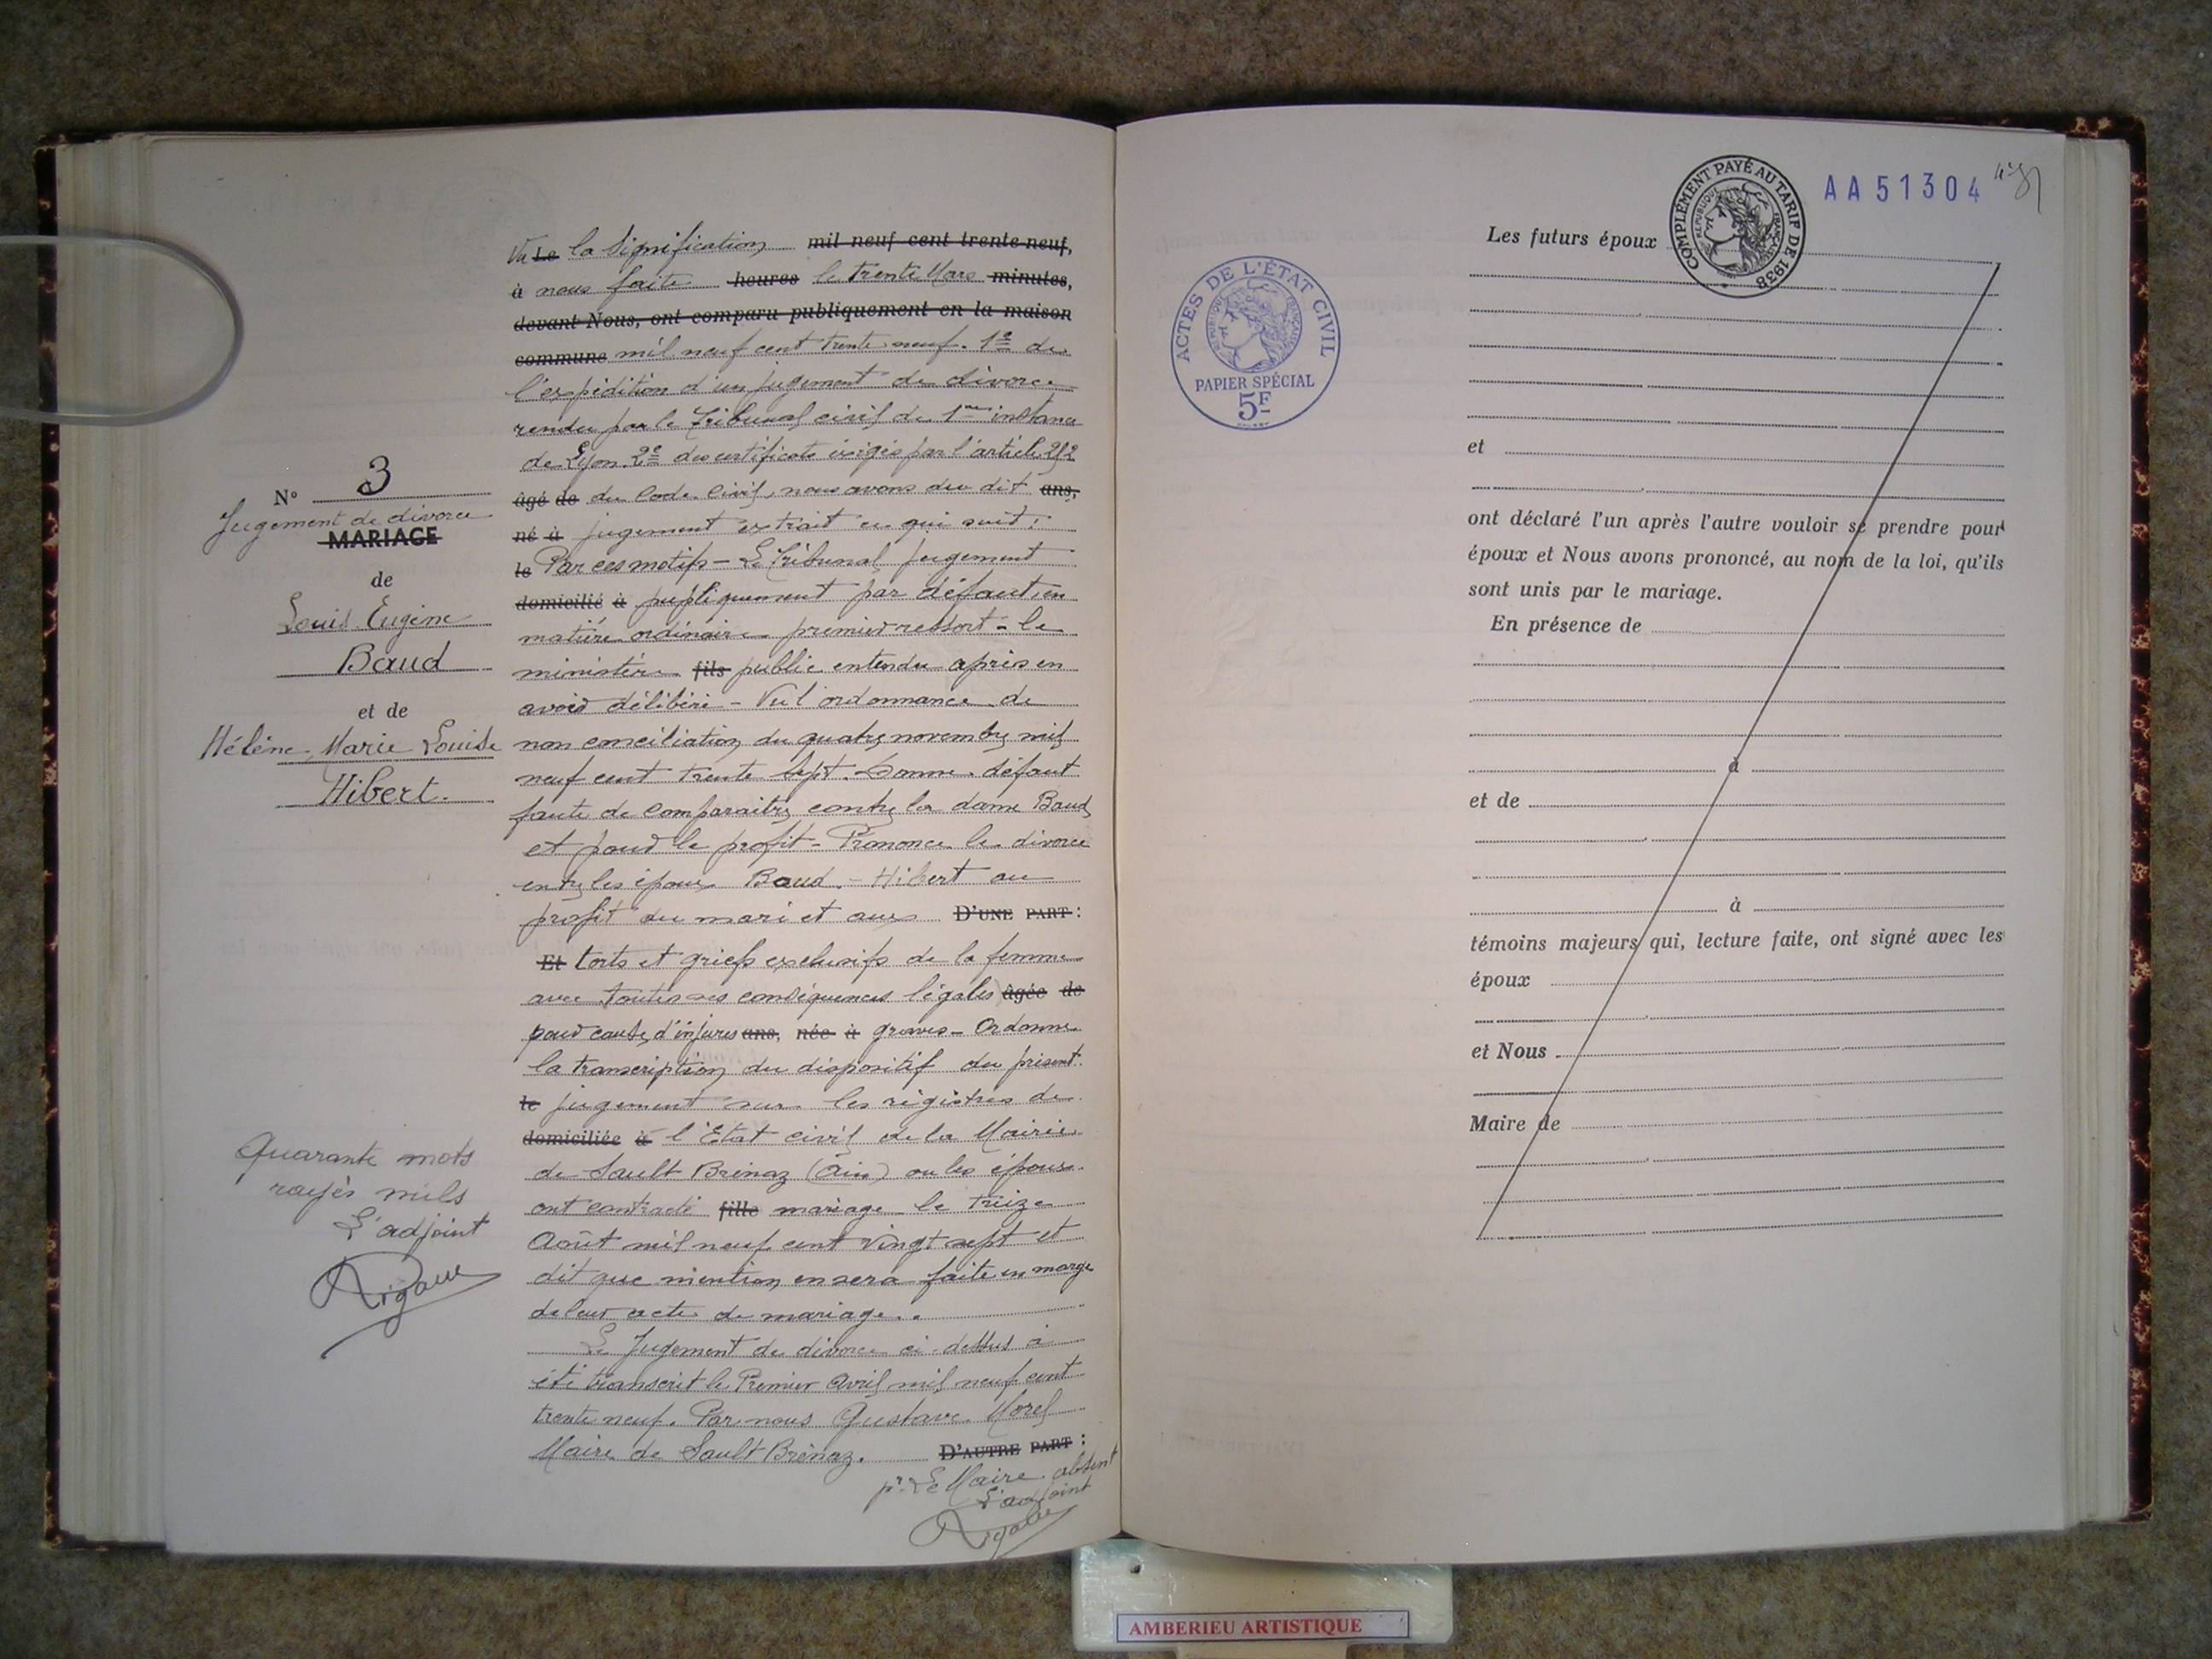 N° 3
Jugement de divorce
MARIAGE
de
Louis Eugène
Baud
et de
Hélène Marie Louise
Hibert.
Quarante mots
rayés nuls
L'adjoint
Rigaud
Vu Le la Signification mil neuf cent trente-neuf,
à nous faite heures le trente Mars minutes,
devant Nous, ont comparu publiquement en la maison
commune mil neuf cent trente neuf. 1e de
l'expédition d'un jugement de divorce
rendu par le Tribunal civil de 1re instance
de Lyon 2e des certificats exigés par l'article 252
âgé de du Code Civil, nous avons du dit ans,
né à jugement extrait ce qui suit :
le Par ces motifs - Le Tribunal jugement
domicilié à publiquement par défaut en
matière ordinaire premier ressort - le
ministère fils public entendu après en
avoir délibéré - Vu l'ordonnance de
non conciliation du quatre novembre mil
neuf cent trente sept. Donne défaut
faute de comparaitre contre la dame Baud
et pour le profit - Prononce le divorce
entre les époux Baud - Hibert au
profit du mari et aux D'UNE PART :
Et torts et griefs exclusifs de la femme
avec toutes ses conséquences légales âgée de
pour cause d'injures ans, née à graves - Ordonne
la transcription du dispositif du présent
le jugement sur les registres de
domiciliée à l'Etat civil de la Mairie
de Sault Brénaz (Ain) ou les époux
ont contracté fille mariage le treize
Août mil neuf cent vingt sept et
dit que mention en sera faite en marge
de leur acte de mariage..
Le Jugement de divorce ci-dessus à
été transcrit le Premier Avril mil neuf cent
trente neuf. Par nous Gustave Morel
Maire de Sault Brénaz. D'AUTRE PART :
pr. Le Maire absent
L'adjoint
Rigaud
ACTES DE L'ÉTAT CIVIL
RÉPUBLIQUE FRANÇAISE
PAPIER SPÉCIAL
5F
COMPLÉMENT PAYÉ AU TARIF DE 1938
RÉPUBLIQUE FRANÇAISE
AA51304
Les futurs époux
et
ont déclaré l'un après l'autre vouloir se prendre pour
époux et Nous avons prononcé, au nom de la loi, qu'ils
sont unis par le mariage.
En présence de
à
et de
à
témoins majeurs qui, lecture faite, ont signé avec les
époux
et Nous
Maire de
AMBERIEU ARTISTIQUE